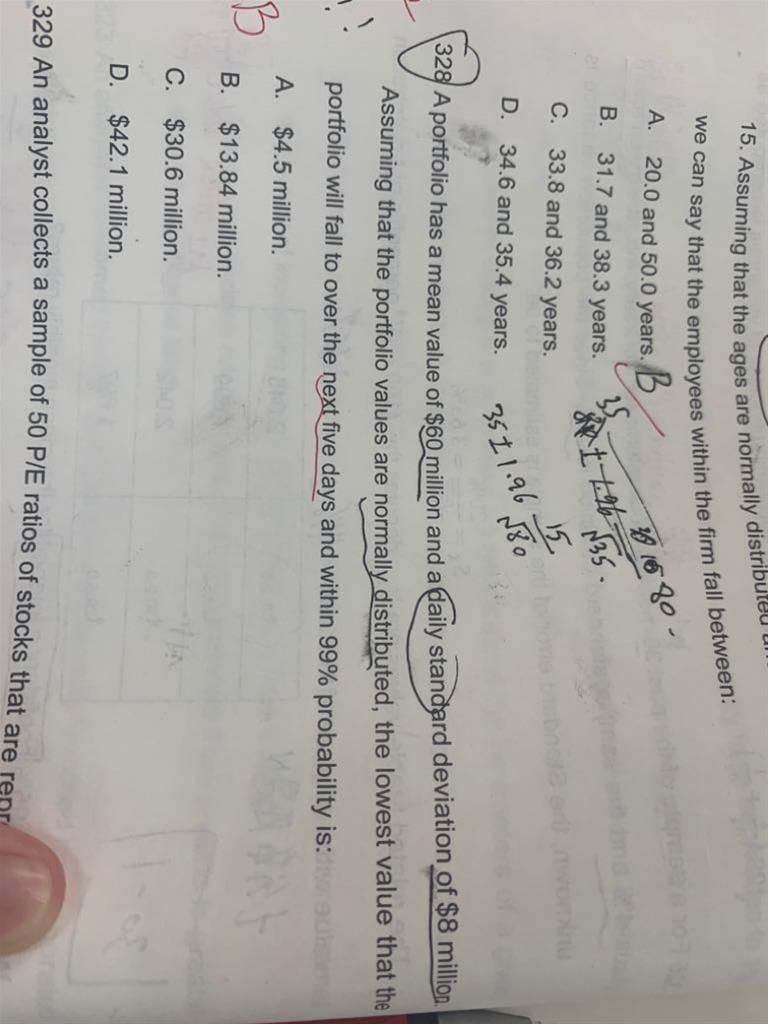 15. Assuming that the ages are normally distributed
we can say that the employees within the firm fall between:
A. 20.0 and 50.0 years. B
B. 31.7 and 38.3 years.
C. 33.8 and 36.2 years.
D. 34.6 and 35.4 years.
35 ± 1.96 15
√80
328 A portfolio has a mean value of $60 million and a daily standard deviation of $8 million.
Assuming that the portfolio values are normally distributed, the lowest value that the
portfolio will fall to over the next five days and within 99% probability is:
B
A. $4.5 million.
B. $13.84 million.
C. $30.6 million.
D. $42.1 million.
329 An analyst collects a sample of 50 P/E ratios of stocks that are